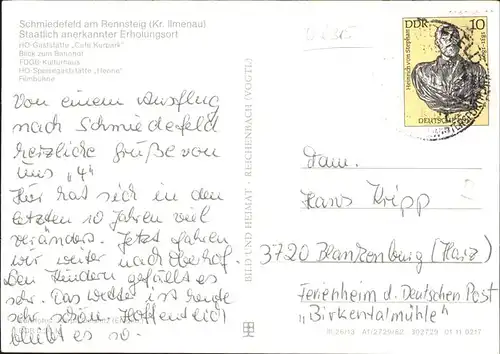 Schmiedefeld am Rennsteig (Kr. Ilmenau)
Staatlich anerkannter Erholungsort
HO-Gaststätte „Café Kurpark"
Blick zum Bahnhof
FDGB-Kulturhaus
HO-Speisegaststätte „Henne"
Filmbühne
Von einem Ausflug
nach Schmiedefeld
herzliche Grüße von
uns „4"
Hier hat sich in den
letzten 10 Jahren viel
verändert. Jetzt fahren
wir weiter nach Oberhof.
Den Kindern gefällt es
sehr. Das Wetter ist heute
sehr schön. Hoffentlich
bleibt es so.
BILD UND HEIMAT · REICHENBACH (VOGTL)
DDR 10
Heinrich von Stephan
1831
DEUTSCHE
Fam.
Hans Kripp
3720 Blankenburg (Harz)
Ferienheim d. Deutschen Post
„Birkentalmühle"
III/26/13 A1/2729/82 302729 01 11 0217